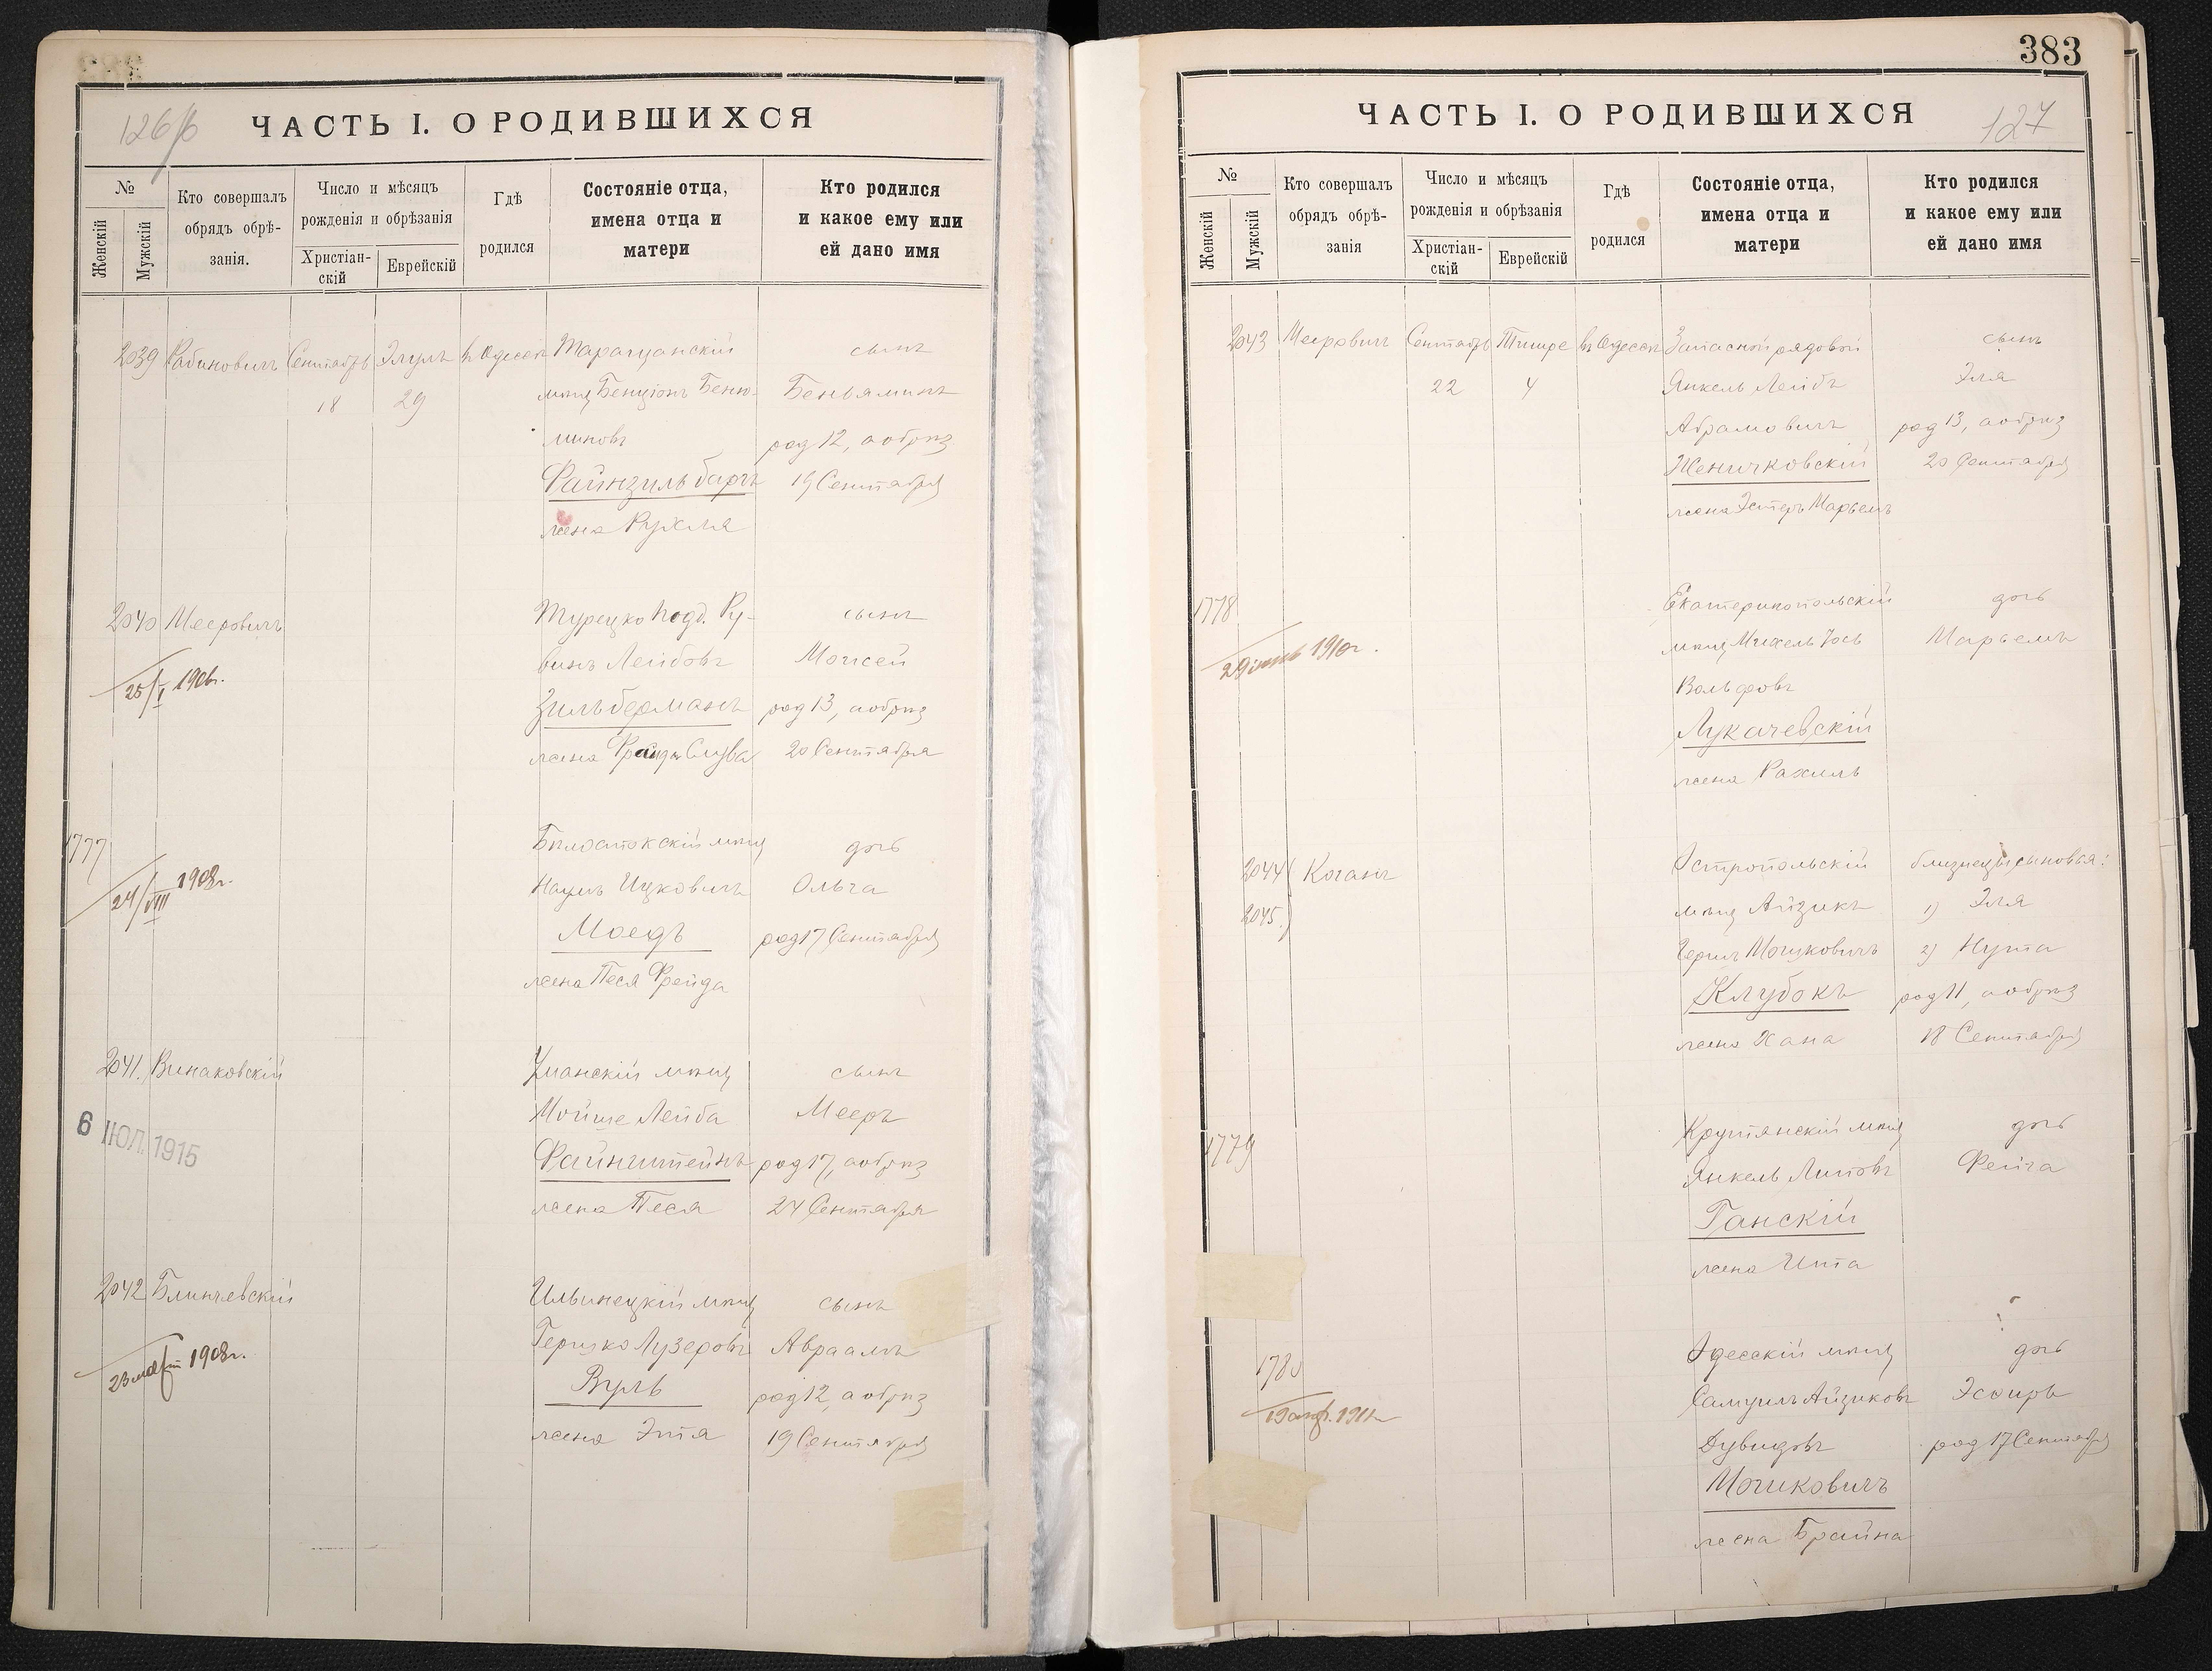 126/б
ЧАСТЬ I. О РОДИВШИХСЯ
№
Женскій
Мужскій
Кто совершалъ
обрядъ обрѣ-
занія.
Число и мѣсяцъ
рожденія и обрѣзанія
Христіан-
скій
Еврейскій
Гдѣ
родился
Состояніе отца,
имена отца и
матери
Кто родился
и какое ему или
ей дано имя
2039 Рабиновичъ Сентябрь Элулъ въ Одессѣ Таращанскій сынъ
18 29 мѣщ Бенціонъ Беню- Беньяминъ
миновъ род 12, а обрѣз
Файнзильбергъ 19 Сентября
жена Рухля
2040 Мееровичъ Турецко подд. Ру- сынъ
винъ Лейбовъ Моисей
25/I 1906г. Зильберманъ род 13, а обрѣз
жена Фрайда Слува 20 Сентября
1777 Бѣлостокскій мѣщ дочь
24/VIII 1908г. Наумъ Ицковичъ Ольга
Моедъ род 17 Сентября
жена Песя Фрейда
2041. Винаковскій Уманскій мѣщ сынъ
6 ІЮЛ. 1915 Мойше Лейба Мееръ
Файнштейнъ род 17, а обрѣз
жена Песя 24 Сентября
2042 Блинчевскій Ильинецкій мѣщ сынъ
Гершко Лузеровъ Авраамъ
23 1908г. Вуль род 12, а обрѣз
жена Этя 19 Сентября
383
127
ЧАСТЬ I. О РОДИВШИХСЯ
№
Женскій
Мужскій
Кто совершалъ
обрядъ обрѣ-
занія
Число и мѣсяцъ
рожденія и обрѣзанія
Христіан-
скій
Еврейскій
Гдѣ
родился
Состояніе отца,
имена отца и
матери
Кто родился
и какое ему или
ей дано имя
2043 Мееровичъ Сентябрь Тишре въ Одессѣ Запасной рядовой сынъ
22 4 Янкель Лейбъ Эля
Абрамовичъ род 13, а обрѣз
Женичковскій 20 Сентября
жена Эстеръ Марьемъ
1778 Екатеринопольскій дочь
мѣщ Михель Іось Марьемъ
1910г. Вольфовъ
Лукачевскій
жена Рахиль
2044 Коганъ Остропольскій близнецы сыновья:
2045. мѣщ Айзикъ 1) Эля
Герш Мошковичъ 2) Нута
Клубокъ род 11, а обрѣз
жена Хана 18 Сентября
1779 Крутянскій мѣщ дочь
Янкель Липовъ Фейга
Ганскій
жена Ита
1780 Одесскій мѣщ дочь
19 1911г Самуилъ Айзиковъ Эсфирь
Дувидовъ род 17 Сентября
Мошковичъ
жена Брайна